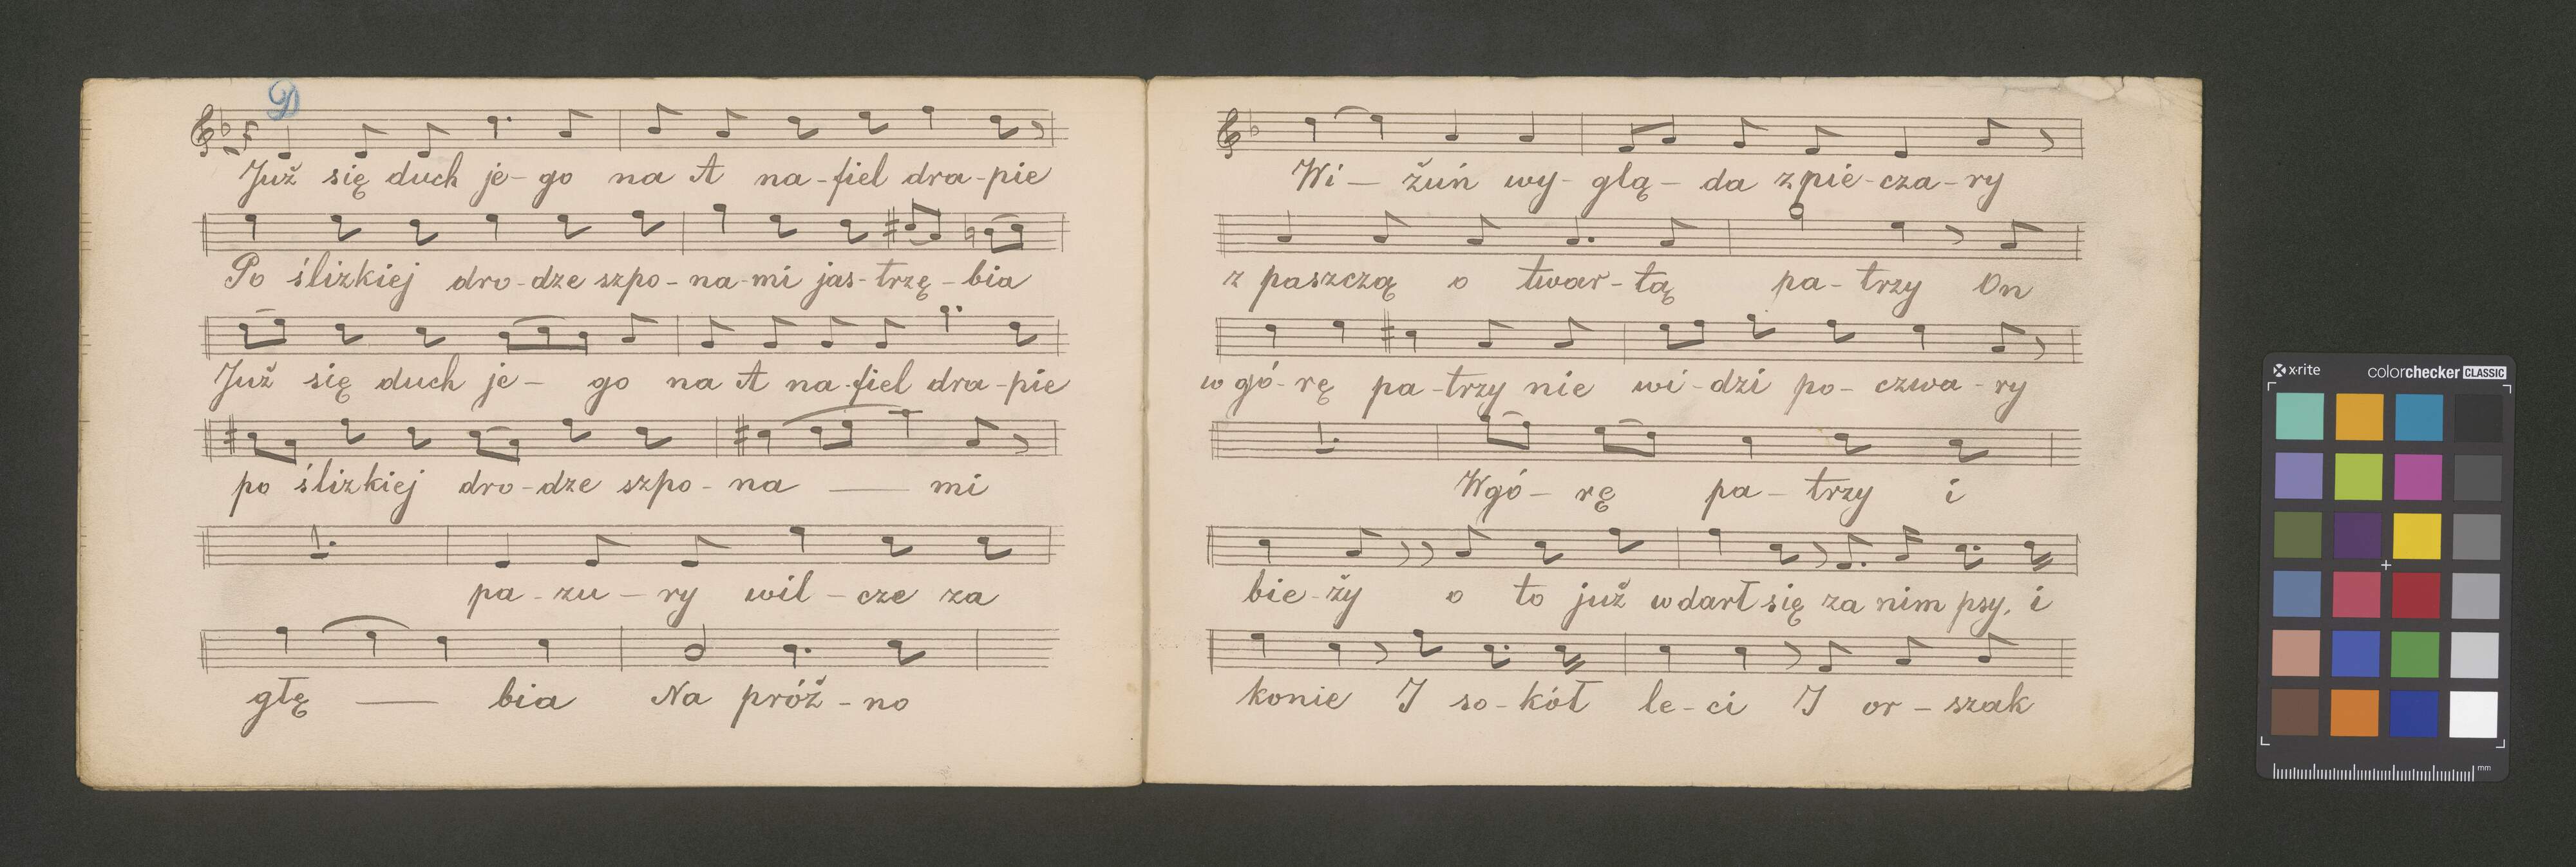 D
Już się duch je-go na A na-fiel dra-pie
Po ślizkiej dro-dze szpo-na-mi jas-trzę-bia
Już się duch je- go na A na-fiel dra-pie
po ślizkiej dro-dze szpo-na — mi
pa-zu-ry wil-cze za
głę — bia Na próż-no
Wi-żuń wy-glą-da z pie-cza-ry
z paszczą o twar-tą pa-trzy On
w gó-rę pa-trzy nie wi-dzi po-czwa-ry
Wgó-rę pa-trzy i
bie-ży o to już wdarł się za nim psy, i
konie I so-kół le-ci I or-szak
x·rite colorchecker CLASSIC
mm